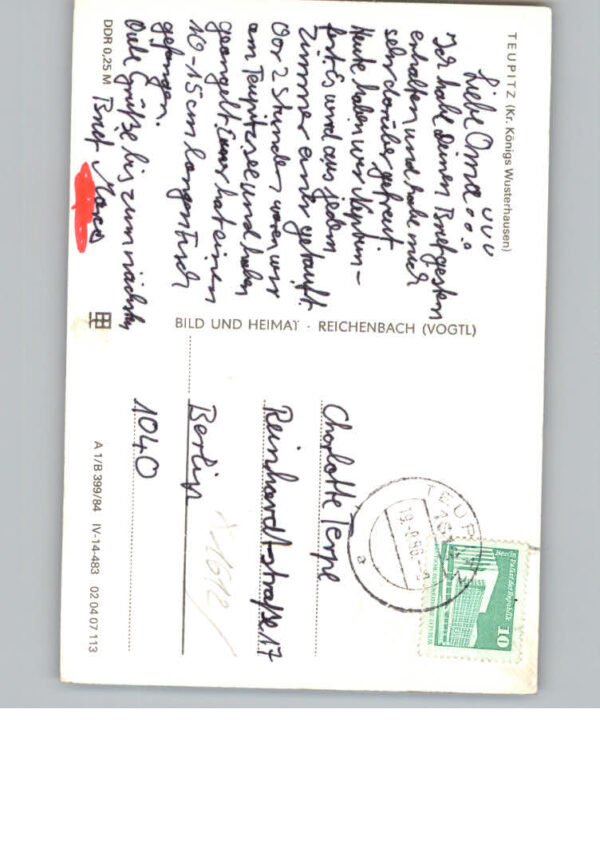 TEUPITZ (Kr. Königs Wusterhausen)
Liebe Oma...
Ich habe deinen Brief gestern
erhalten und habe mich
sehr darüber gefreut.
Heute haben wir Neptun-
fest. Es wird aus jedem
Zimmer einer getauft.
Vor 2 Stunden waren wir
am Teupitzsee und haben
geangelt. Einer hat einen
10-15cm langen Fisch
gefangen.
Viele Grüße bis zum nächsten
Brief Marco
DDR 0,25 M
BILD UND HEIMAT · REICHENBACH (VOGTL)
Charlotte Terpe
Reinhardtstraße 17
Berlin
1040
X 1612/
A 1/B 399/84 IV-14-483 02 04 07 113
TEUPITZ
a
Berlin
Palast der Republik
10